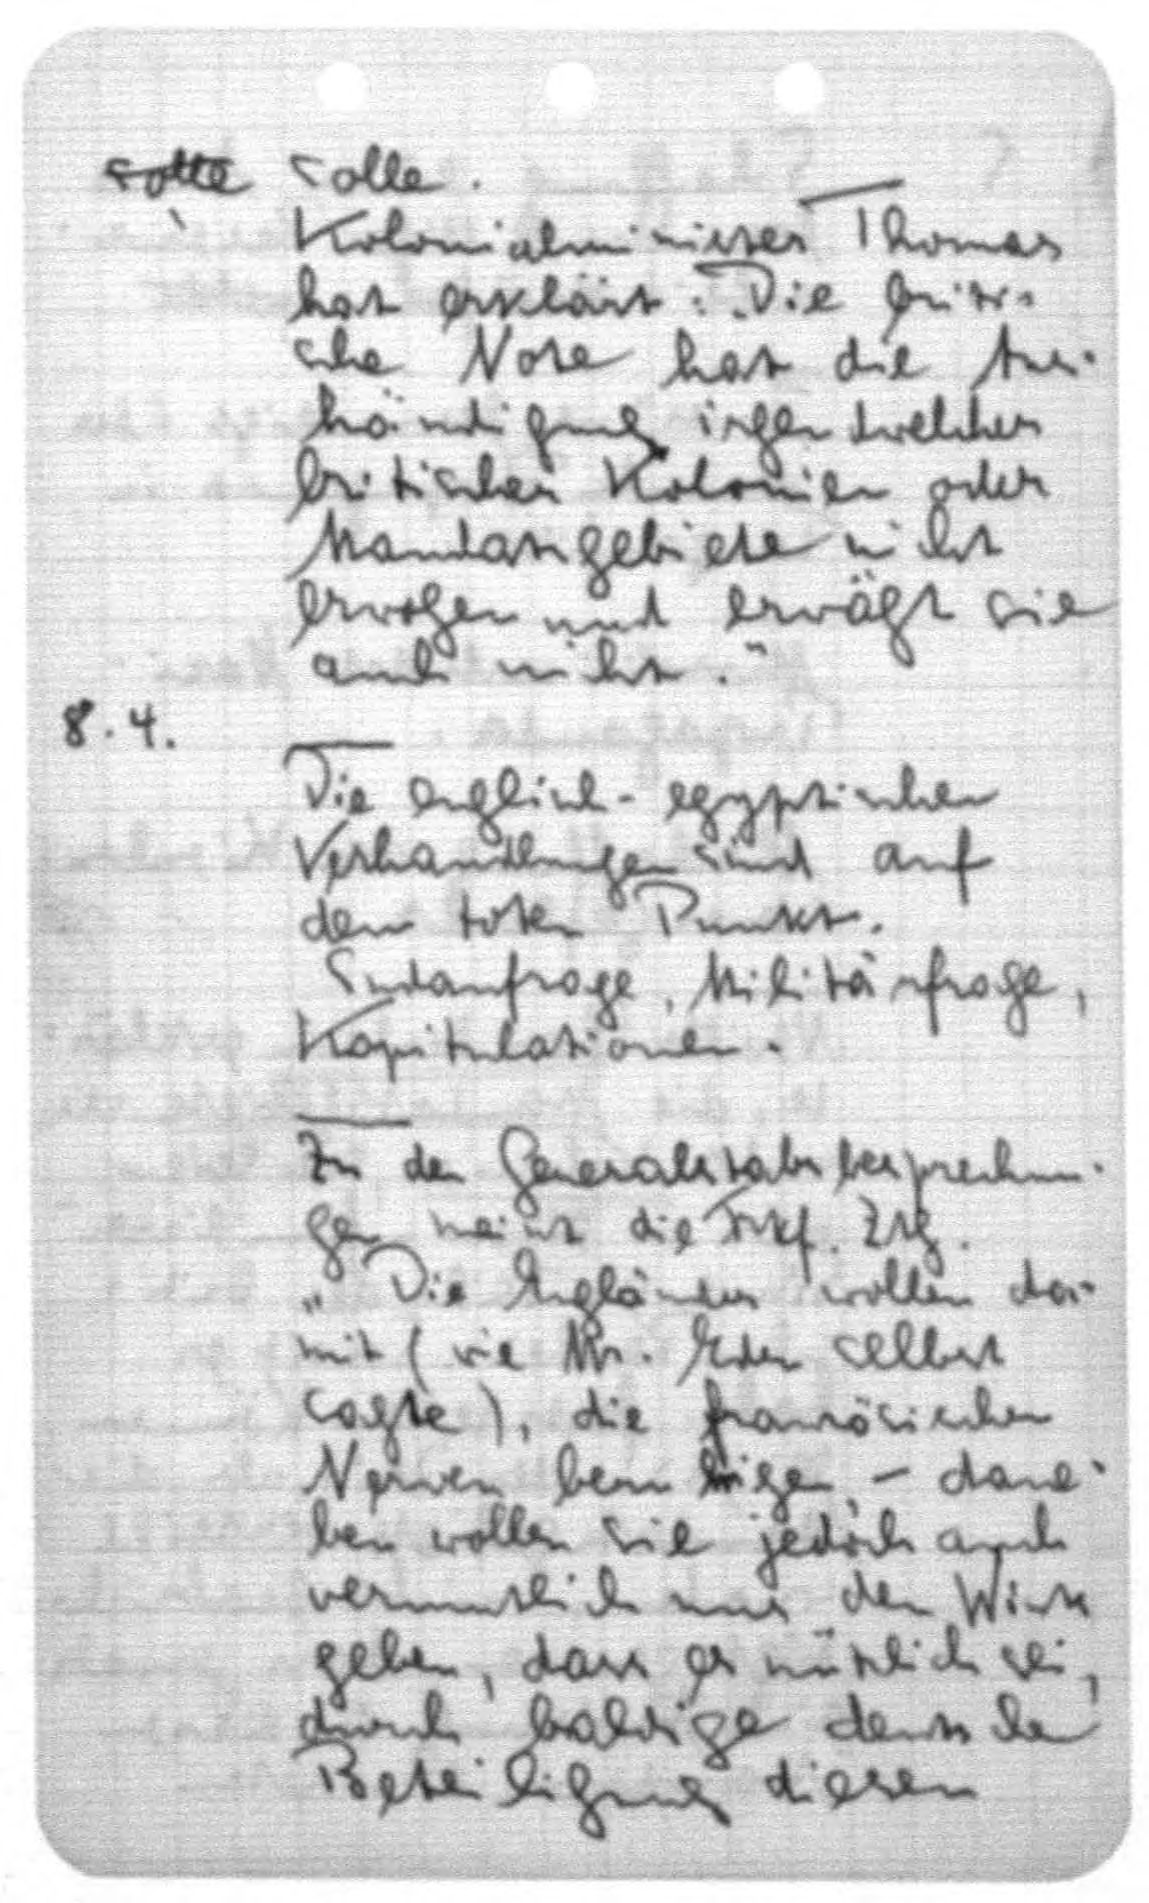 solle solle.
Kolonialminister Thomas
hat erklärt: „Die briti-
sche Note hat die Aus-
händigung irgendwelcher
britischer Kolonien oder
Mandatsgebiete nicht
erwogen und erwägt sie
auch nicht."
8.4.
Die englisch-egyptischen
Verhandlungen sind auf
dem toten Punkt.
Sudanfrage, Militärfrage,
Kapitulationen.
Zu den Generalstabsbesprechun-
gen meint die Frkf. Ztg.
„Die Engländer wollen da-
mit (wie Mr. Eden selbst
sagte), die französischen
Nerven beruhigen - dane-
ben wollen sie jedoch auch
vermutlich uns den Wink
geben, dass es nützlich sei,
durch baldige deutsche
Beteiligung diesen